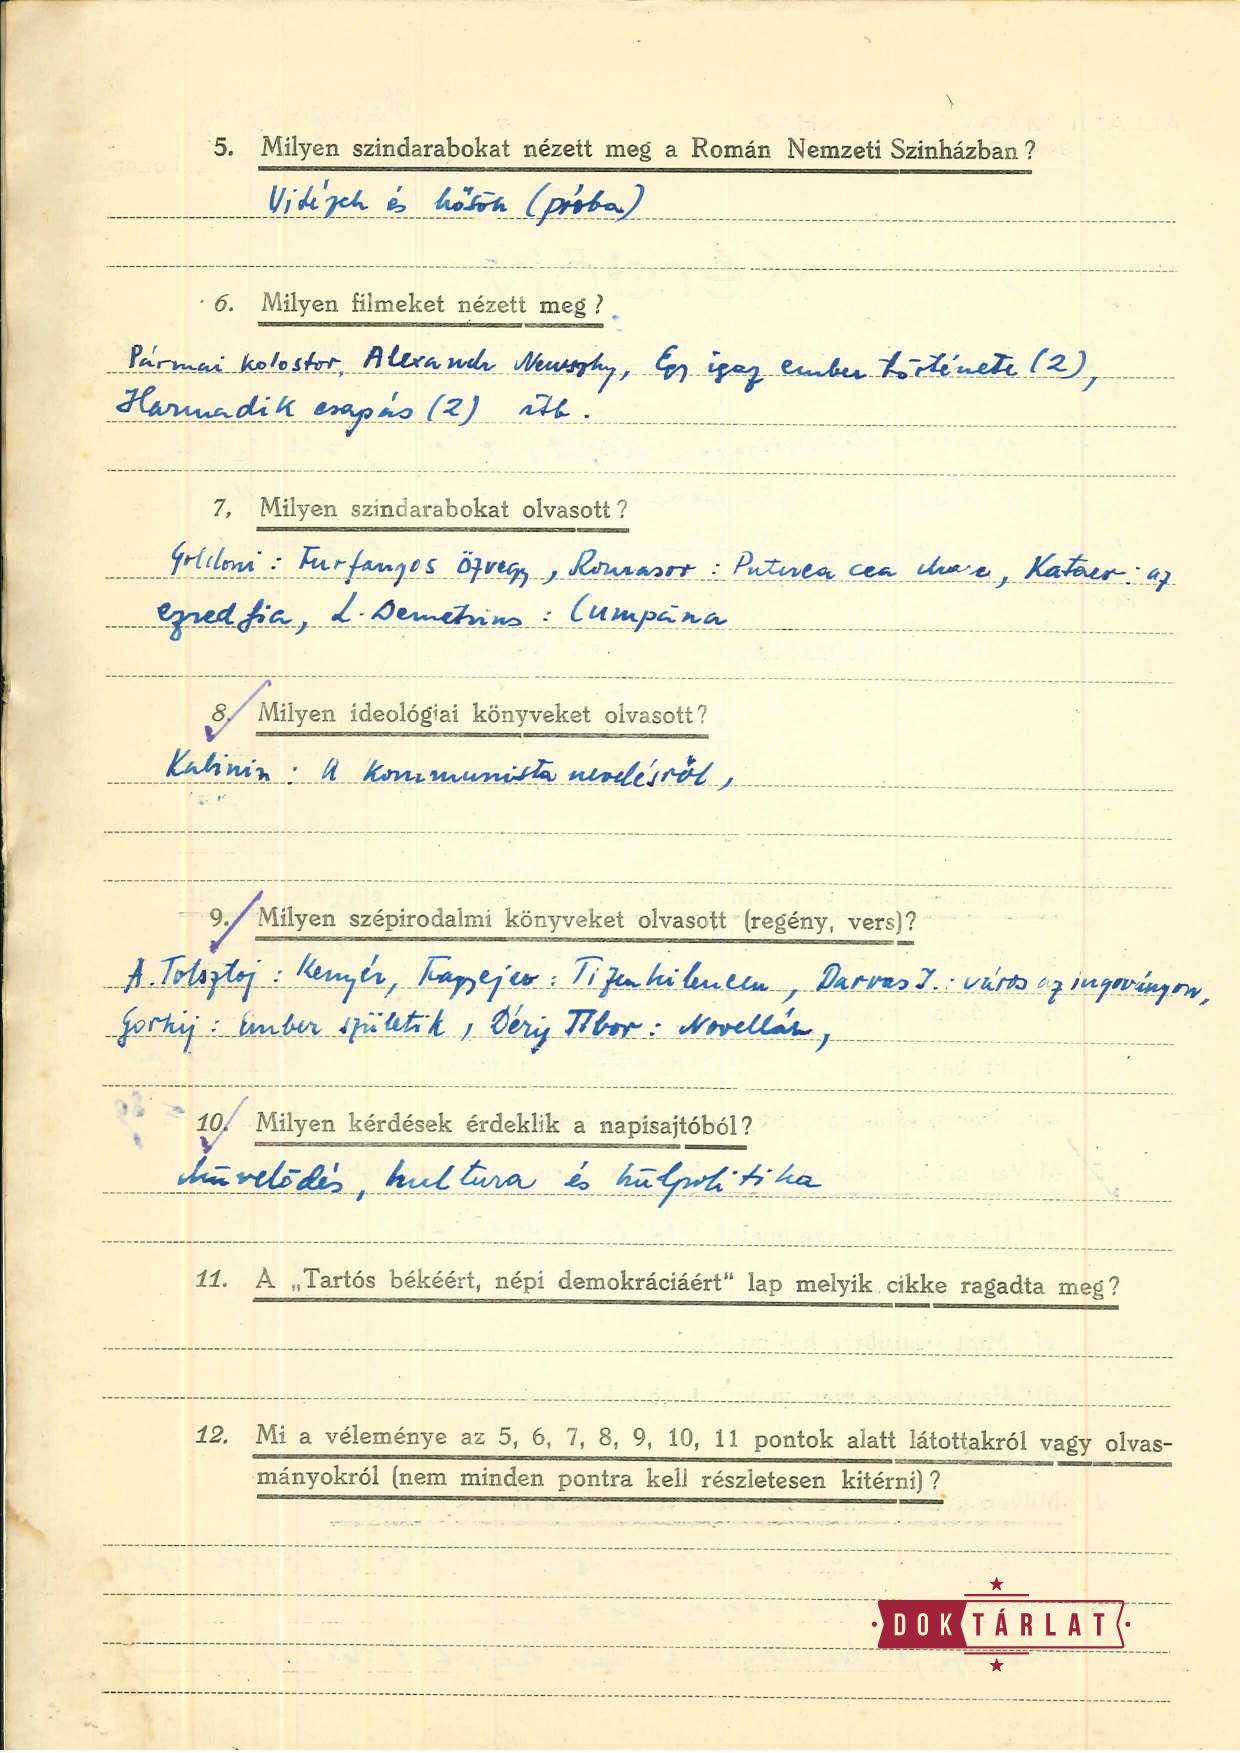 5. Milyen szindarabokat nézett meg a Román Nemzeti Szinházban?
Vitézek és hősök (próba)
6. Milyen filmeket nézett meg?
Pármai kolostor, Alexandr Newszky, Egy igaz ember története (2),
Harmadik csapás (2) stb.
7, Milyen szindarabokat olvasott?
Goldoni: Furfangos özvegy, : Puterea cea mare, Kataev: az
ezred fia, L. Demetrius: Cumpăna
8. Milyen ideológiai könyveket olvasott?
Kalinin: A kommunista nevelésről,
9. Milyen szépirodalmi könyveket olvasott (regény, vers)?
A. Tolsztoj: Kenyér, : Tizenkilencen, Darvas J.: város az ingoványon,
Gorkij: Ember születik, Déry Tibor: Novellák,
10. Milyen kérdések érdeklik a napisajtóból?
Művelődés, kultura és külpolitika
11. A „Tartós békéért, népi demokráciáért" lap melyik cikke ragadta meg?
12. Mi a véleménye az 5, 6, 7, 8, 9, 10, 11 pontok alatt látottakról vagy olvas-
mányokról (nem minden pontra kell részletesen kitérni)?
DOKTÁRLAT